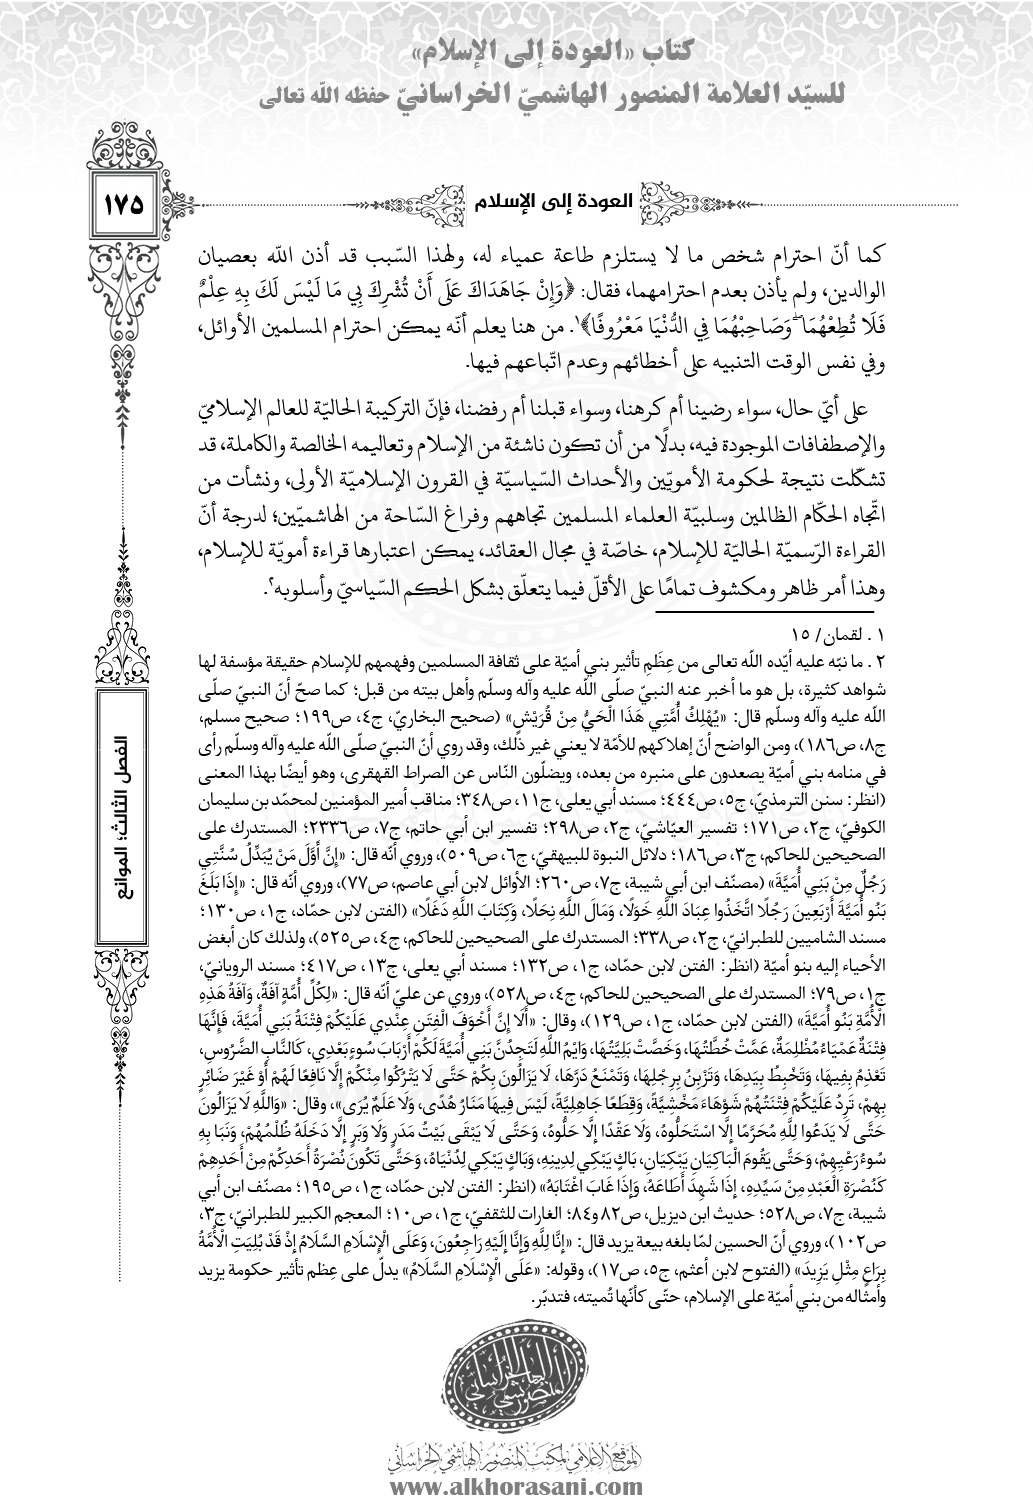 كتاب «العودة إلى الإسلام»
للسيّد العلامة المنصور الهاشميّ الخراسانيّ حفظه الله تعالى
١٧٥
العودة إلى الإسلام
كما أنّ احترام شخص ما لا يستلزم طاعة عمياء له، ولهذا السّبب قد أذن الله بعصيان
الوالدين، ولم يأذن بعدم احترامهما، فقال: ﴿وَإِنْ جَاهَدَاكَ عَلَى أَنْ تُشْرِكَ بِي مَا لَيْسَ لَكَ بِهِ عِلْمٌ
فَلَا تُطِعْهُمَا ۖ وَصَاحِبْهُمَا فِي الدُّنْيَا مَعْرُوفًا﴾١. من هنا يعلم أنّه يمكن احترام المسلمين الأوائل،
وفي نفس الوقت التنبيه على أخطائهم وعدم اتّباعهم فيها.
على أيّ حال، سواء رضينا أم كرهنا، وسواء قبلنا أم رفضنا، فإنّ التركيبة الحاليّة للعالم الإسلاميّ
والإصطفافات الموجودة فيه، بدلًا من أن تكون ناشئة من الإسلام وتعاليمه الخالصة والكاملة، قد
تشكّلت نتيجة لحكومة الأمويّين والأحداث السّياسيّة في القرون الإسلاميّة الأولى، ونشأت من
اتّجاه الحكّام الظالمين وسلبيّة العلماء المسلمين تجاههم وفراغ السّاحة من الهاشميّين؛ لدرجة أنّ
القراءة الرّسميّة الحاليّة للإسلام، خاصّة في مجال العقائد، يمكن اعتبارها قراءة أمويّة للإسلام،
وهذا أمر ظاهر ومكشوف تمامًا على الأقلّ فيما يتعلّق بشكل الحكم السّياسيّ وأسلوبه٢.
١. لقمان/ ١٥
٢. ما نبّه عليه أيّده الله تعالى من عِظَمِ تأثير بني أميّة على ثقافة المسلمين وفهمهم للإسلام حقيقة مؤسفة لها
شواهد كثيرة، بل هو ما أخبر عنه النبيّ صلّى الله عليه وآله وسلّم وأهل بيته من قبل؛ كما صحّ أنّ النبيّ صلّى
الله عليه وآله وسلّم قال: «يُهْلِكُ أُمَّتِي هَذَا الْحَيُّ مِنْ قُرَيْشٍ» (صحيح البخاريّ، ج٤، ص١٩٩؛ صحيح مسلم،
ج٨، ص١٨٦)، ومن الواضح أنّ إهلاكهم للأمّة لا يعني غير ذلك، وقد روي أنّ النبيّ صلّى الله عليه وآله وسلّم رأى
في منامه بني أميّة يصعدون على منبره من بعده، ويضلّون النّاس عن الصراط القهقرى، وهو أيضًا بهذا المعنى
(انظر: سنن الترمذيّ، ج٥، ص٤٤٤؛ مسند أبي يعلى، ج١١، ص٣٤٨؛ مناقب أمير المؤمنين لمحمّد بن سليمان
الكوفيّ، ج٢، ص١٧١؛ تفسير العيّاشيّ، ج٢، ص٢٩٨؛ تفسير ابن أبي حاتم، ج٧، ص٢٣٣٦؛ المستدرك على
الصحيحين للحاكم، ج٣، ص١٨٦؛ دلائل النبوة للبيهقيّ، ج٦، ص٥٠٩)، وروي أنّه قال: «إِنَّ أَوَّلَ مَنْ يُبَدِّلُ سُنَّتِي
رَجُلٌ مِنْ بَنِي أُمَيَّةَ» (مصنّف ابن أبي شيبة، ج٧، ص٢٦٠؛ الأوائل لابن أبي عاصم، ص٧٧)، وروي أنّه قال: «إِذَا بَلَغَ
بَنُو أُمَيَّةَ أَرْبَعِينَ رَجُلًا اتَّخَذُوا عِبَادَ اللَّهِ خَوَلًا، وَمَالَ اللَّهِ نِحَلًا، وَكِتَابَ اللَّهِ دَغَلًا» (الفتن لابن حمّاد، ج١، ص١٣٠؛
مسند الشاميين للطبرانيّ، ج٢، ص٣٣٨؛ المستدرك على الصحيحين للحاكم، ج٤، ص٥٢٥)، ولذلك كان أبغض
الأحياء إليه بنو أميّة (انظر: الفتن لابن حمّاد، ج١، ص١٣٢؛ مسند أبي يعلى، ج١٣، ص٤١٧؛ مسند الرويانيّ،
ج١، ص٧٩؛ المستدرك على الصحيحين للحاكم، ج٤، ص٥٢٨)، وروي عن عليّ أنّه قال: «لِكُلِّ أُمَّةٍ آفَةٌ، وَآفَةُ هَذِهِ
الْأُمَّةِ بَنُو أُمَيَّةَ» (الفتن لابن حمّاد، ج١، ص١٢٩)، وقال: «أَلَا إِنَّ أَخْوَفَ الْفِتَنِ عِنْدِي عَلَيْكُمْ فِتْنَةُ بَنِي أُمَيَّةَ، فَإِنَّهَا
فِتْنَةٌ عَمْيَاءُ مُظْلِمَةٌ، عَمَّتْ خُطَّتُهَا، وَخَصَّتْ بَلِيَّتُهَا، وَايْمُ اللَّهِ لَتَجِدُنَّ بَنِي أُمَيَّةَ لَكُمْ أَرْبَابَ سُوءٍ بَعْدِي، كَالنَّابِ الضَّرُوسِ،
تَعْذِمُ بِفِيهَا، وَتَخْبِطُ بِيَدِهَا، وَتَزْبِنُ بِرِجْلِهَا، وَتَمْنَعُ دَرَّهَا، لَا يَزَالُونَ بِكُمْ حَتَّى لَا يَتْرُكُوا مِنْكُمْ إِلَّا نَافِعًا لَهُمْ أَوْ غَيْرَ ضَائِرٍ
بِهِمْ، تَرِدُ عَلَيْكُمْ فِتْنَتُهُمْ شَوْهَاءَ مَخْشِيَّةً، وَقِطَعًا جَاهِلِيَّةً، لَيْسَ فِيهَا مَنَارُ هُدًى، وَلَا عَلَمٌ يُرَى»، وقال: «وَاللَّهِ لَا يَزَالُونَ
حَتَّى لَا يَدَعُوا لِلَّهِ مُحَرَّمًا إِلَّا اسْتَحَلُّوهُ، وَلَا عَقْدًا إِلَّا حَلُّوهُ، وَحَتَّى لَا يَبْقَى بَيْتُ مَدَرٍ وَلَا وَبَرٍ إِلَّا دَخَلَهُ ظُلْمُهُمْ، وَنَبَا بِهِ
سُوءُ رَعْيِهِمْ، وَحَتَّى يَقُومَ الْبَاكِيَانِ يَبْكِيَانِ، بَاكٍ يَبْكِي لِدِينِهِ، وَبَاكٍ يَبْكِي لِدُنْيَاهُ، وَحَتَّى تَكُونَ نُصْرَةُ أَحَدِكُمْ مِنْ أَحَدِهِمْ
كَنُصْرَةِ الْعَبْدِ مِنْ سَيِّدِهِ، إِذَا شَهِدَ أَطَاعَهُ، وَإِذَا غَابَ اغْتَابَهُ» (انظر: الفتن لابن حمّاد، ج١، ص١٩٥؛ مصنّف ابن أبي
شيبة، ج٧، ص٥٢٨؛ حديث ابن ديزيل، ص٨٢ و٨٤؛ الغارات للثقفيّ، ج١، ص١٠؛ المعجم الكبير للطبرانيّ، ج٣،
ص١٠٢)، وروي أنّ الحسين لمّا بلغه بيعة يزيد قال: «إِنَّا لِلَّهِ وَإِنَّا إِلَيْهِ رَاجِعُونَ، وَعَلَى الْإِسْلَامِ السَّلَامُ إِذْ قَدْ بُلِيَتِ الْأُمَّةُ
بِرَاعٍ مِثْلِ يَزِيدَ» (الفتوح لابن أعثم، ج٥، ص١٧)، وقوله: «عَلَى الْإِسْلَامِ السَّلَامُ» يدلّ على عِظم تأثير حكومة يزيد
وأمثاله من بني أميّة على الإسلام، حتّى كأنّها تُميته، فتدبّر.
الفصل الثالث؛ الموانع
المنصور الهاشمي الخراساني
الموقع الإعلامي لمكتب المنصور الهاشمي الخراساني
www.alkhorasani.com